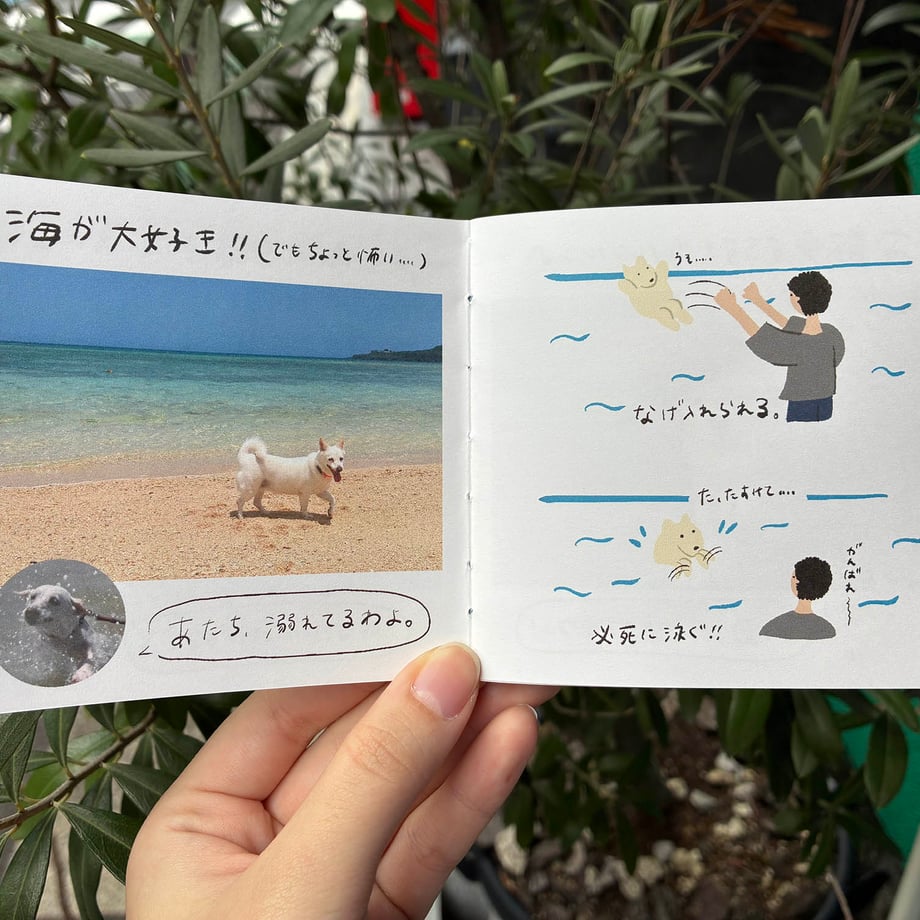 海が大好き!!(でもちょっと怖い....)
あたち、溺れてるわよ。
うそ.....
なげ入れられる。
た、たすけて....
がんばれ〜〜
必死に泳ぐ!!